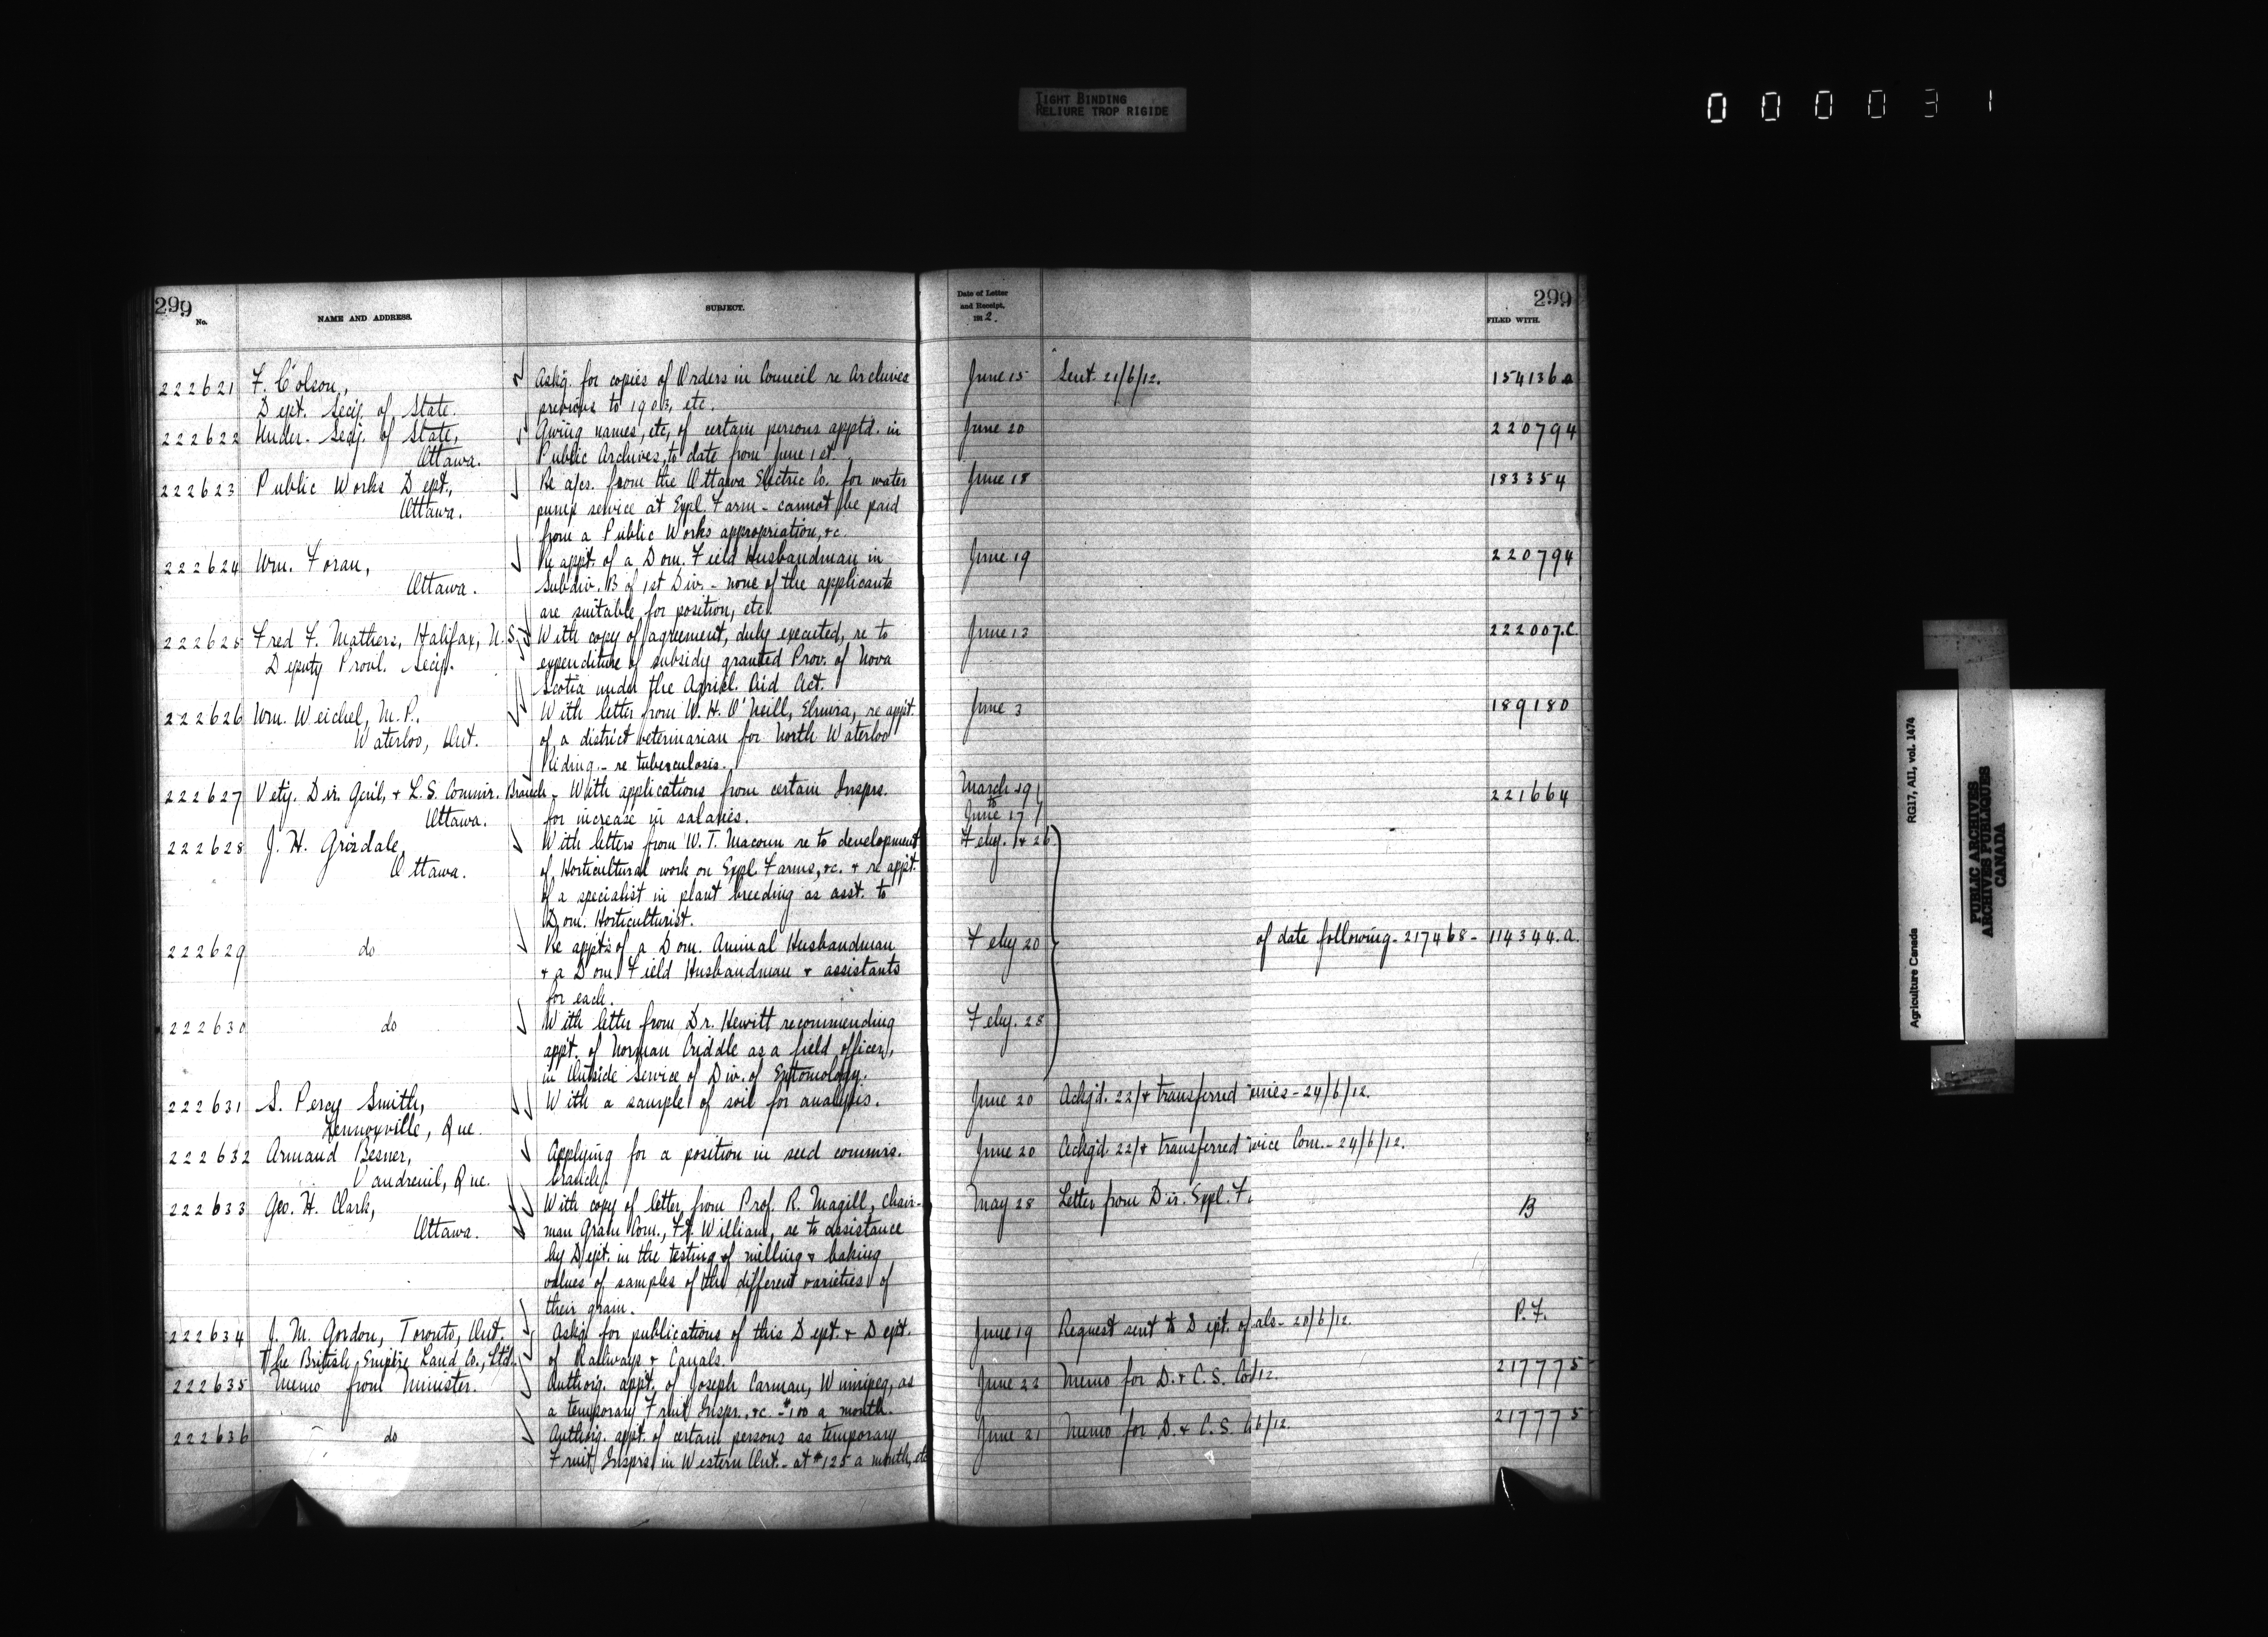 TIGHT BINDING
RELIURE TROP RIGIDE
000031
299
299
No.
NAME AND ADDRESS.
SUBJECT.
Date of Letter
and Receipt,
1912.
FILED WITH.
222621 F. Colson, Askg. for copies of Orders in Council re Archives June 15 Sent 21/6/12. 154136a
Dept. Secy. of State. previous to 1903, etc.
222622 Under. Secy. of State, Giving names, etc, of certain persons apptd. in June 20 220794
Ottawa. Public Archives, to date from June 1st.
222623 Public Works Dept., Re a/cs. from the Ottawa Electric Co. for water June 18 183354
Ottawa. pump service at Expl. Farm - cannot be paid
from a Public Works appropriation, &c.
222624 Wm. Foran, Re appt. of a Dom. Field Husbandman in June 19 220794
Ottawa. Subdiv. B of 1st Div. - none of the applicants
are suitable for position, etc.
222625 Fred F. Mathers, Halifax, N.S. With copy of agreement, duly executed, re to June 13 222007.C.
Deputy Provl. Secy. expenditure of subsidy granted Prov. of Nova
Scotia under the Agricl. Aid Act.
222626 Wm. Weichel, M.P., With letter from W. H. O'Neill, Elmira, re appt. June 3 189180
Waterloo, Ont. of a district veterinarian for North Waterloo
Riding - re tuberculosis.
222627 Vety. Dir. Genl, & L.S. Commr. Branch - With applications from certain Insprs. March 29 to 221664
Ottawa. for increase in salaries. June 17
222628 J. H. Grisdale, With letters from W. T. Macoun re to development Feby. 1 & 26
Ottawa. of Horticultural work on Expl. Farms, &c. & re appt.
of a specialist in plant breeding as asst. to
Dom. Horticulturist.
222629 do Re appts of a Dom. Animal Husbandman Feby 20 of date following - 217468 - 114344.a.
& a Dom. Field Husbandman & assistants
for each.
222630 do With letter from Dr. Hewitt recommending Feby. 28
appt. of Norman Criddle as a field officer,
in Outside Service of Div. of Entomology.
222631 S. Percy Smith, With a sample of soil for analysis. June 20 Ackgd. 22/ & transferred - 24/6/12.
Lennoxville, Que.
222632 Armand Besner, Applying for a position in seed commrs. June 20 Ackgd. 22/ & transferred vice Com. - 24/6/12.
Vaudreuil, Que. branch.
222633 Geo. H. Clark, With copy of letter from Prof. R. Magill, Chair- May 28 Letter from Dir. Expl. F. B
Ottawa. man Grain Com., Ft. William, re to assistance
by Dept. in the testing of milling & baking
values of samples of the different varieties of
their grain.
222634 J. M. Gordon, Toronto, Ont. Askg. for publications of this Dept. & Dept. June 19 Request sent to Dept. of als - 20/6/12. P.F.
The British Empire Land Co., Ltd. of Railways & Canals.
222635 Memo from Minister. Authorg. appt. of Joseph Carman, Winnipeg, as June 22 Memo for D. & C. S. Co /12. 217775
a temporary Fruit Inspr., &c. - $100 a month.
222636 do Authorg. appt. of certain persons as temporary June 21 Memo for D. & C. S. 6/12. 217775
Fruit Insprs in Western Ont. - at $125 a month, etc
Agriculture Canada RG17, AII, vol. 1474
PUBLIC ARCHIVES
ARCHIVES PUBLIQUES
CANADA